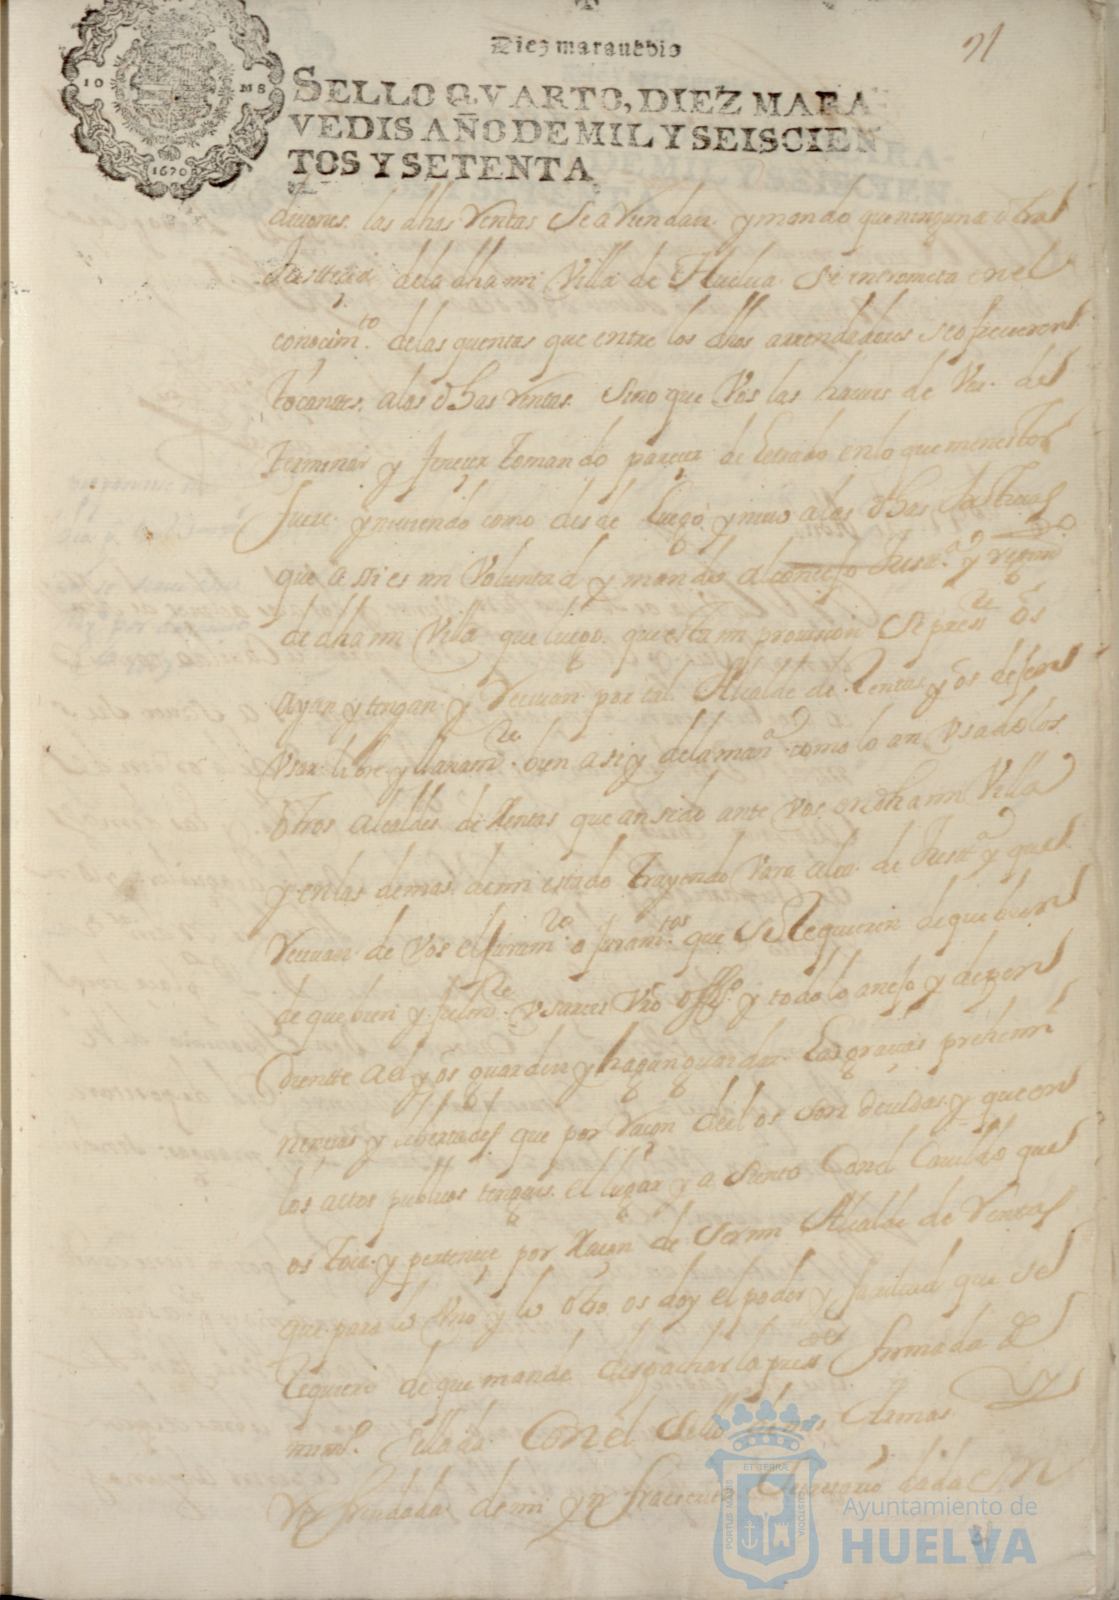 91
Diez marauedis
SELLO QVARTO, DIEZ MARA
VEDIS AÑO DE MIL Y SEISCIEN
TOS Y SETENTA
10 MS
1670
diciones. las dhas Rentas Se arriendan y mando que ninguna otra
Justicia dela dha mi Villa de Huelua Se intrometa en el
conocim.to delas quentas que entre los dhos arrendadores se ofrecieren
tocantes. a las dhas Rentas. Sino que Vos las haueis de Ver. de
terminar y fenecer tomando parecer de Letrado en lo que menester
fuere. y niuiendo como desde luego yniuo a las dhas Justicias
que assi es mi Voluntad y mando al conzejo Justt.a y regim.to
de dha mi Villa que luego. que esta mi prouision Se press.te os
ayan y tengan y Reciuan por tal Alcalde de Rentas y os dejen
Vsar libre y llanam.te bien assi y dela man.a como lo an Vsado los
otros Alcaldes de Rentas que an sido ante Vos. en dha mi Villa
y en las demas de mi estado trayendo Vara alta de Justt.a y que
Reciuan de Vos el juram.to o juram.tos que Se Requieren de que bien
de que bien y fielm.te Vsareis Vro off.o y todo lo anejo y depen
diente a el y os guarden y hagan guardar. Las gracias prehemi
nencias y libertades que por Raçon dellos Son deuidas. y que en
los actos publicos tengais. el lugar y asiento Con el Cauildo que
os toca y pertenece por Raçon de Ser mi Alcalde de Rentas
que para lo Vno y lo otro os doy el poder y facultad que se
Requiere de que mandé despachar la press.te firmada de
mi m.o Sellada Con el Sello de mis Armas y
Refrendada de mi yn fraescrito Secretario dada En
PORTUS MARIS
ET TERRAE
CUSTODIA
Ayuntamiento de
HUELVA